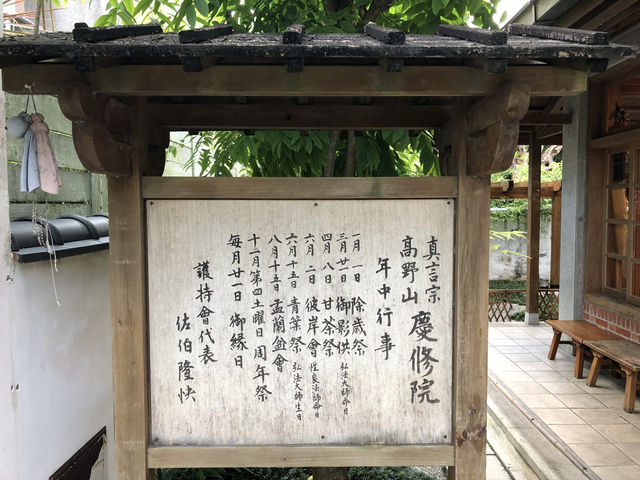 真言宗
高野山 慶修院
年中行事
一月一日 除歳祭
三月廿一日 御影供 弘法大師命日
四月八日 甘茶祭
六月二日 彼岸會 性泉法師命日
六月十五日 青葉祭 弘法大師生日
八月十五日 盂蘭盆會
十一月第四土曜日 周年祭
毎月廿一日 御縁日
護持會代表
佐伯隆快